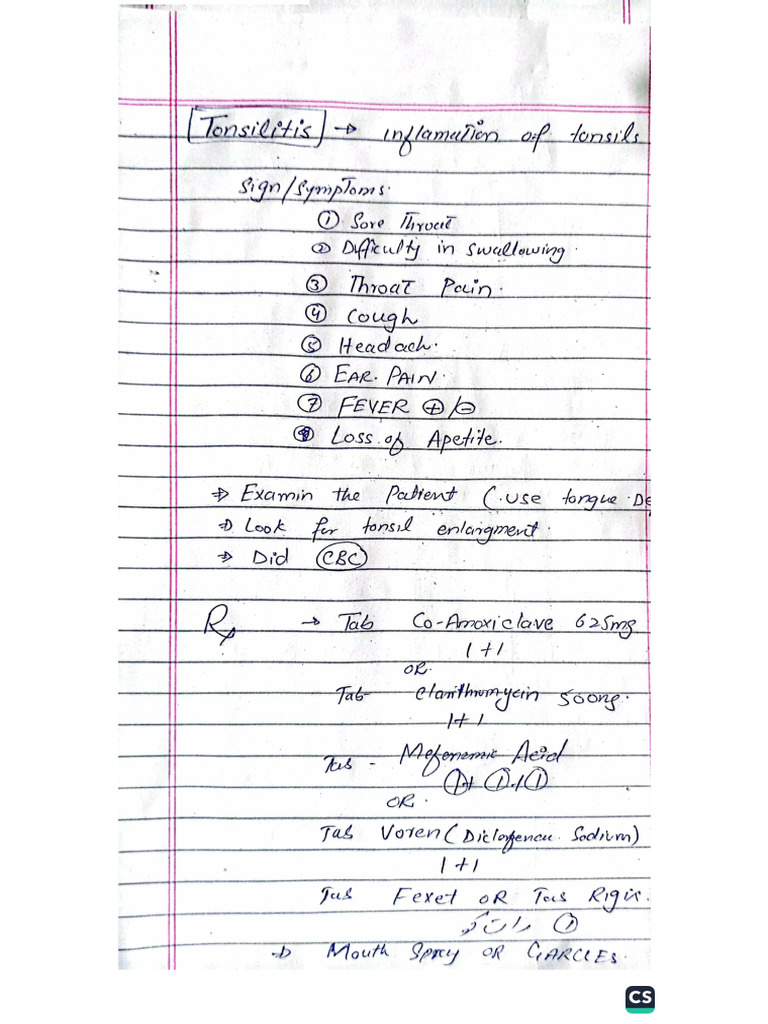 Tonsilitis → inflamation of tonsils
Sign/Symptoms.
① Sore Throat
② Difficulty in swallowing.
③ Throat Pain.
④ Cough
⑤ Headach.
⑥ EAR. PAIN.
⑦ FEVER ⊕/⊖
⑧ Loss of Apetite.
⇒ Examin the Patient (use tongue De
⇒ Look for tonsil enlargment.
⇒ Did CBC
Rx → Tab Co-Amoxiclave 625mg
1+1
OR.
Tab- Clarithromycin 500mg.
1+1
Tab - Mefenamic Acid
①+①+①
OR.
Tab Voren (Diclofenac Sodium)
1+1
Tab Fexet OR Tab Rigix.
① رات کو
⇒ Mouth Spray OR GARGLES.
CS